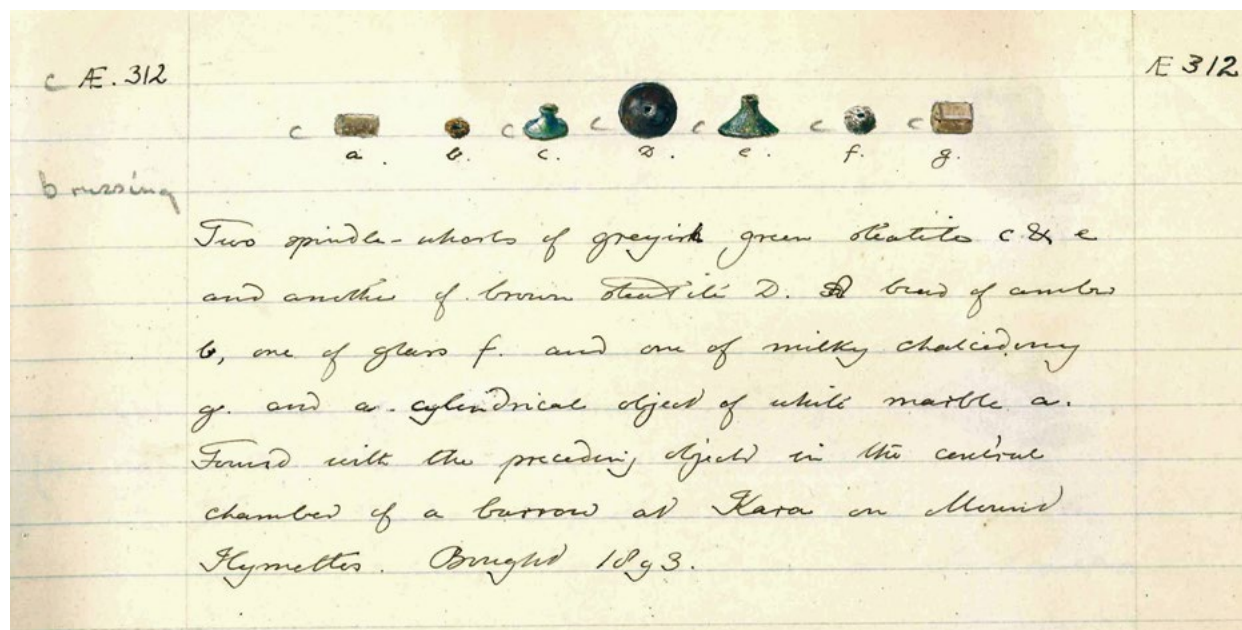 c Æ. 312
Æ 312
c c c c c c
a. b. c. D. e. f. g.
b missing
Two spindle-whorls of greyish green steatite c & e
and another of brown steatite D. A bead of amber
b, one of glass f. and one of milky chalcedony
g. and a cylindrical object of white marble a.
Found with the preceding objects in the central
chamber of a barrow at Kara on Mount
Hymettos. Bought 1893.